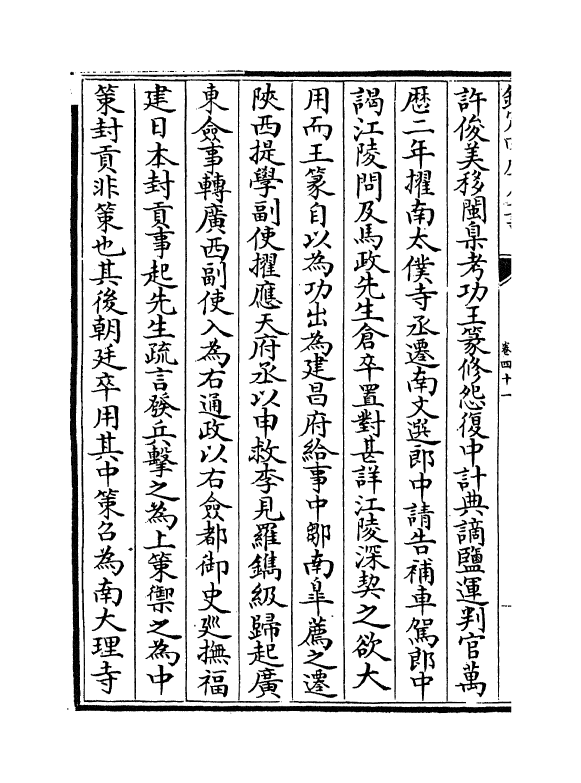 許俊美移閩臬考功王篆修怨復中計典謫鹽運判官萬
歴二年擢南太僕寺丞遷南文選郎中請告補車駕郎中
謁江陵問及馬政先生倉卒置對甚詳江陵深契之欲大
用而王篆自以為功出為建昌府給事中鄒南臯薦之遷
陜西提學副使擢應天府丞以申救李見羅鐫級歸起廣
東僉事轉廣西副使入為右通政以右僉都御史廵撫福
建日本封貢事起先生疏言發兵擊之為上策禦之為中
策封貢非策也其後朝廷卒用其中策召為南大理寺
卷四十一